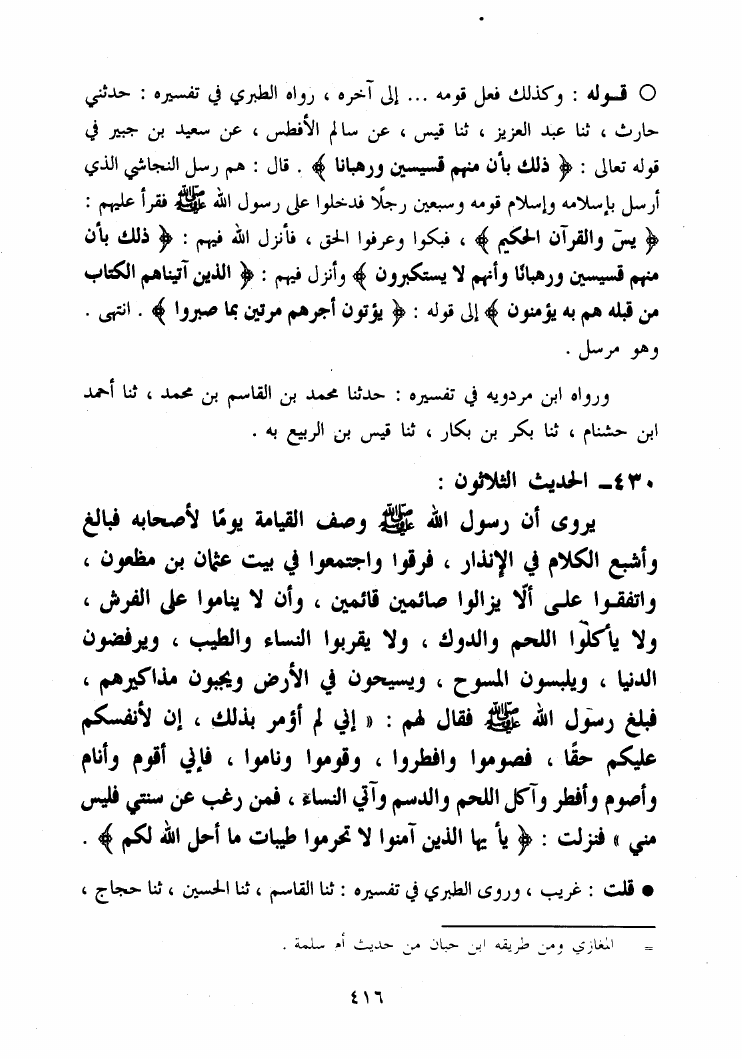 ○ قـوله : وكذلك فعل قومه ... إلى آخره ، رواه الطبري في تفسيره : حدثني
حارث ، ثنا عبد العزيز ، ثنا قيس ، عن سالم الأفطس ، عن سعيد بن جبير في
قوله تعالى : ﴿ ذلك بأن منهم قسيسين ورهبانا ﴾ . قال : هم رسل النجاشي الذي
أرسل بإسلامه وإسلام قومه وسبعين رجلًا فدخلوا على رسول الله ﷺ فقرأ عليهم :
﴿ يسّ والقرآن الحكيم ﴾ ، فبكوا وعرفوا الحق ، فأنزل الله فيهم : ﴿ ذلك بأن
منهم قسيسين ورهبانًا وأنهم لا يستكبرون ﴾ وأنزل فيهم : ﴿ الذين آتيناهم الكتاب
من قبله هم به يؤمنون ﴾ إلى قوله : ﴿ يؤتون أجرهم مرتين بما صبروا ﴾ . انتهى .
وهو مرسل .
ورواه ابن مردويه في تفسيره : حدثنا محمد بن القاسم بن محمد ، ثنا أحمد
ابن حشنام ، ثنا بكر بن بكار ، ثنا قيس بن الربيع به .
٤٣٠ـ الحديث الثلاثون :
يروى أن رسول الله ﷺ وصف القيامة يومًا لأصحابه فبالغ
وأشبع الكلام في الإنذار ، فرقوا واجتمعوا في بيت عثمان بن مظعون ،
واتفقـوا علـى ألّا يزالوا صائمين قائمين ، وأن لا يناموا على الفرش ،
ولا يأكلوا اللحم والدوك ، ولا يقربوا النساء والطيب ، ويرفضون
الدنيا ، ويلبسون المسوح ، ويسيحون في الأرض ويجبون مذاكيرهم ،
فبلغ رسول الله ﷺ فقال لهم : « إني لم أؤمر بذلك ، إن لأنفسكم
عليكم حقًا ، فصوموا وافطروا ، وقوموا وناموا ، فإني أقوم وأنام
وأصوم وأفطر وآكل اللحم والدسم وآتي النساء ، فمن رغب عن سنتي فليس
مني » فنزلت : ﴿ يأ يها الذين آمنوا لا تحرموا طيبات ما أحل الله لكم ﴾ .
● قلت : غريب ، وروى الطبري في تفسيره : ثنا القاسم ، ثنا الحسين ، ثنا حجاج ،
= المغازي ومن طريقه ابن حبان من حديث أم سلمة .
٤١٦